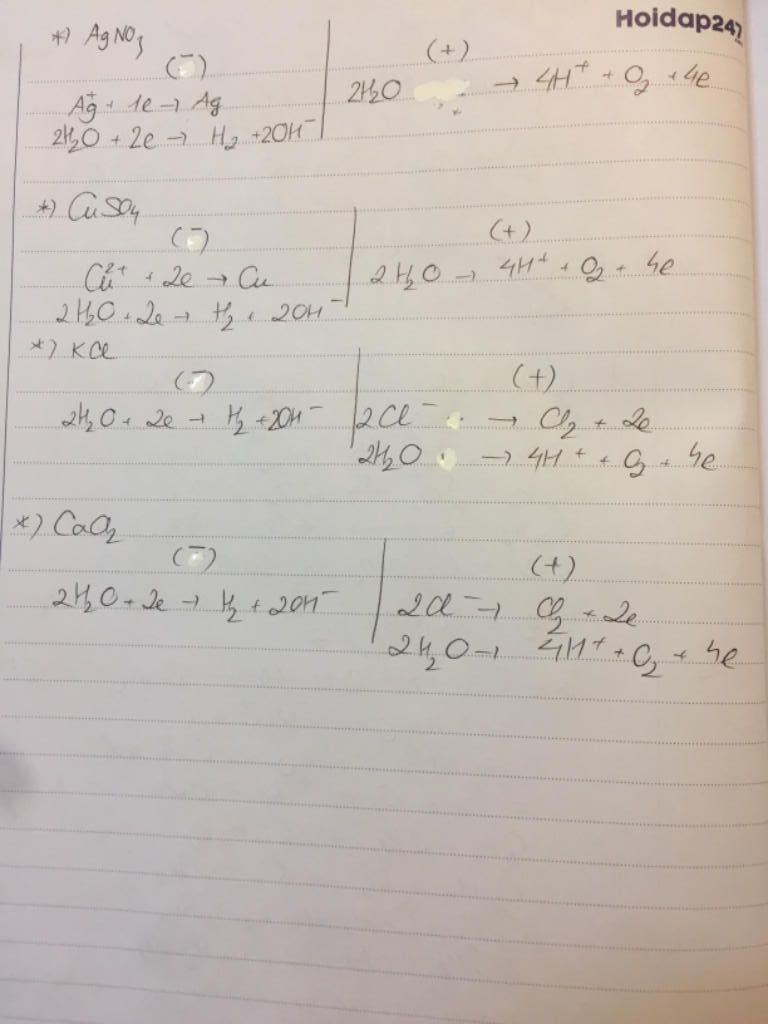 Hoidap247
*) AgNO₃
(-) (+)
Ag⁺ + 1e → Ag 2H₂O → 4H⁺ + O₂ + 4e
2H₂O + 2e → H₂ + 2OH⁻
*) CuSO₄
(-) (+)
Cu²⁺ + 2e → Cu 2H₂O → 4H⁺ + O₂ + 4e
2H₂O + 2e → H₂ + 2OH⁻
*) KCl
(-) (+)
2H₂O + 2e → H₂ + 2OH⁻ 2Cl⁻ → Cl₂ + 2e
2H₂O → 4H⁺ + O₂ + 4e
*) CaCl₂
(-) (+)
2H₂O + 2e → H₂ + 2OH⁻ 2Cl⁻ → Cl₂ + 2e
2H₂O → 4H⁺ + O₂ + 4e